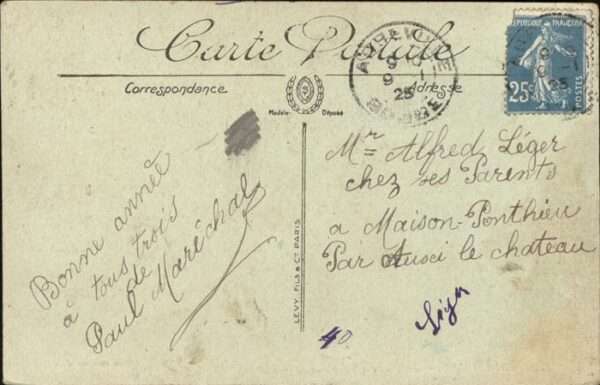 Carte Postale
Correspondance
Adresse
Modèle Déposé
ABBEVILLE
9
9 - 1
25
SOMME
RÉPUBLIQUE FRANÇAISE
25c
POSTES
Mr Alfred Léger
chez ses Parents
a Maison-Ponthieu
Par Auxi le chateau
Bonne année
à tous trois
de
Paul Maréchal
LEVY FILS & Cie PARIS
40